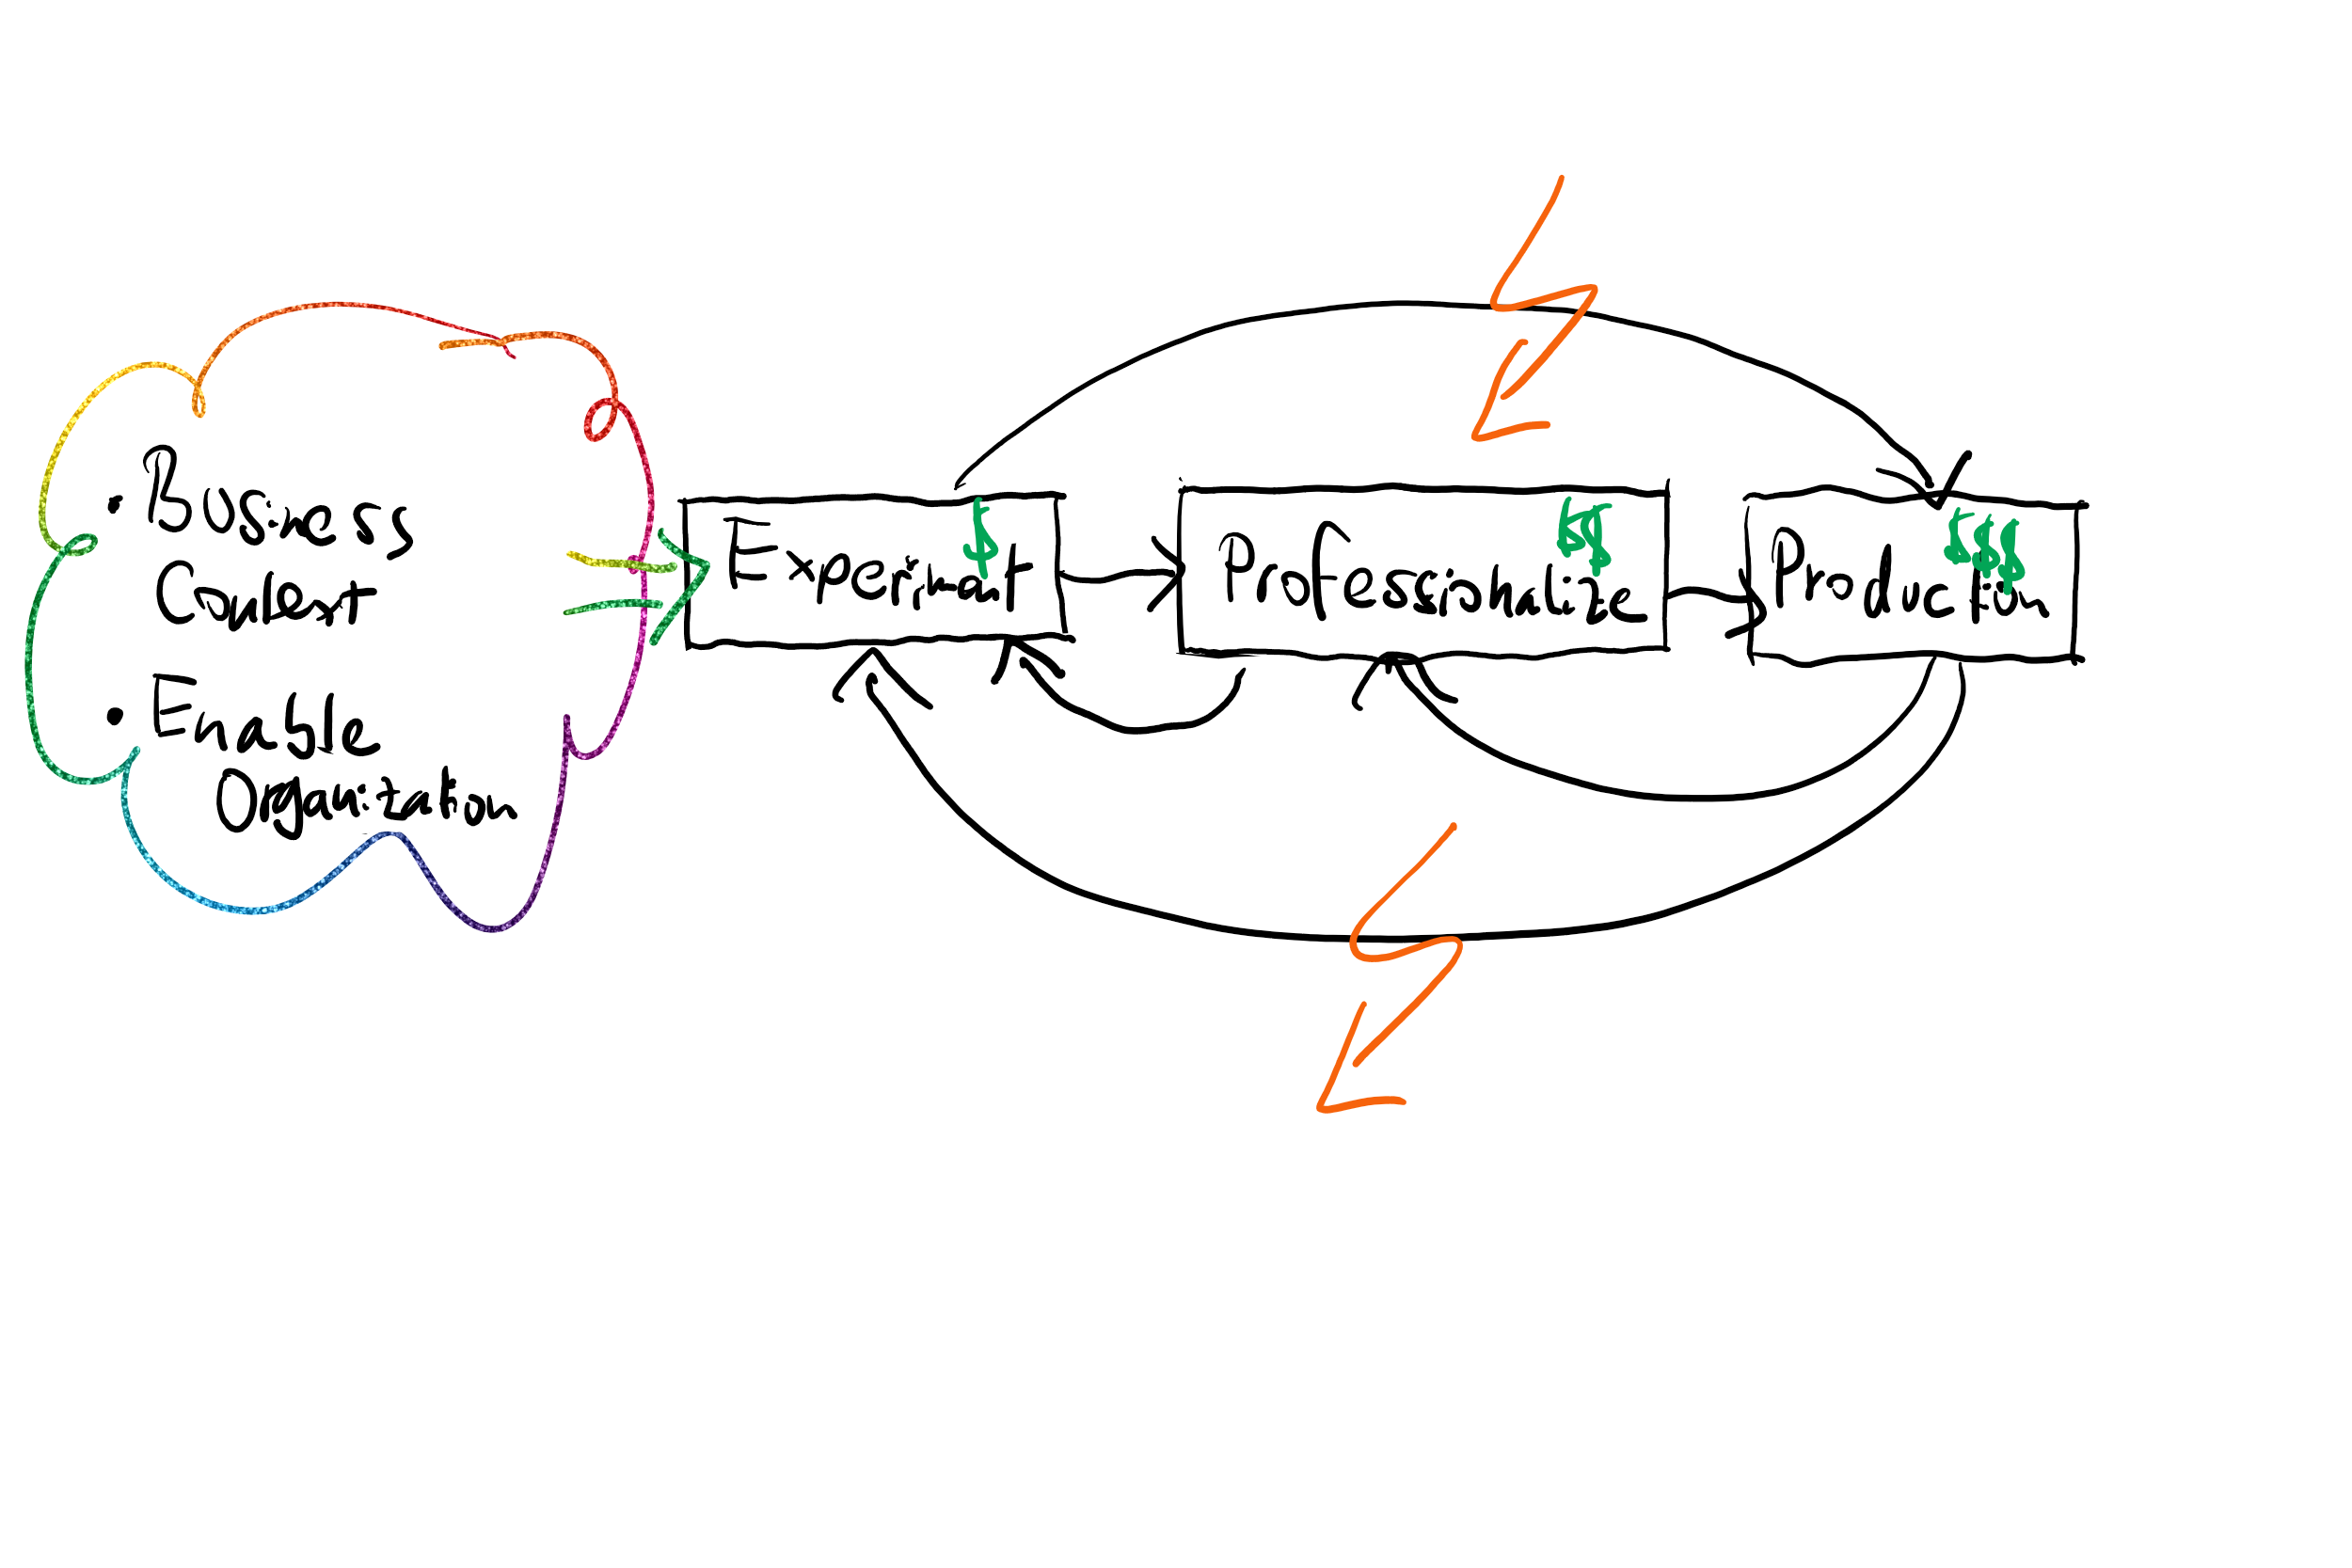 • Business
Context
• Enable
Organization
Experiment $
Professionalize $$
Production $$$